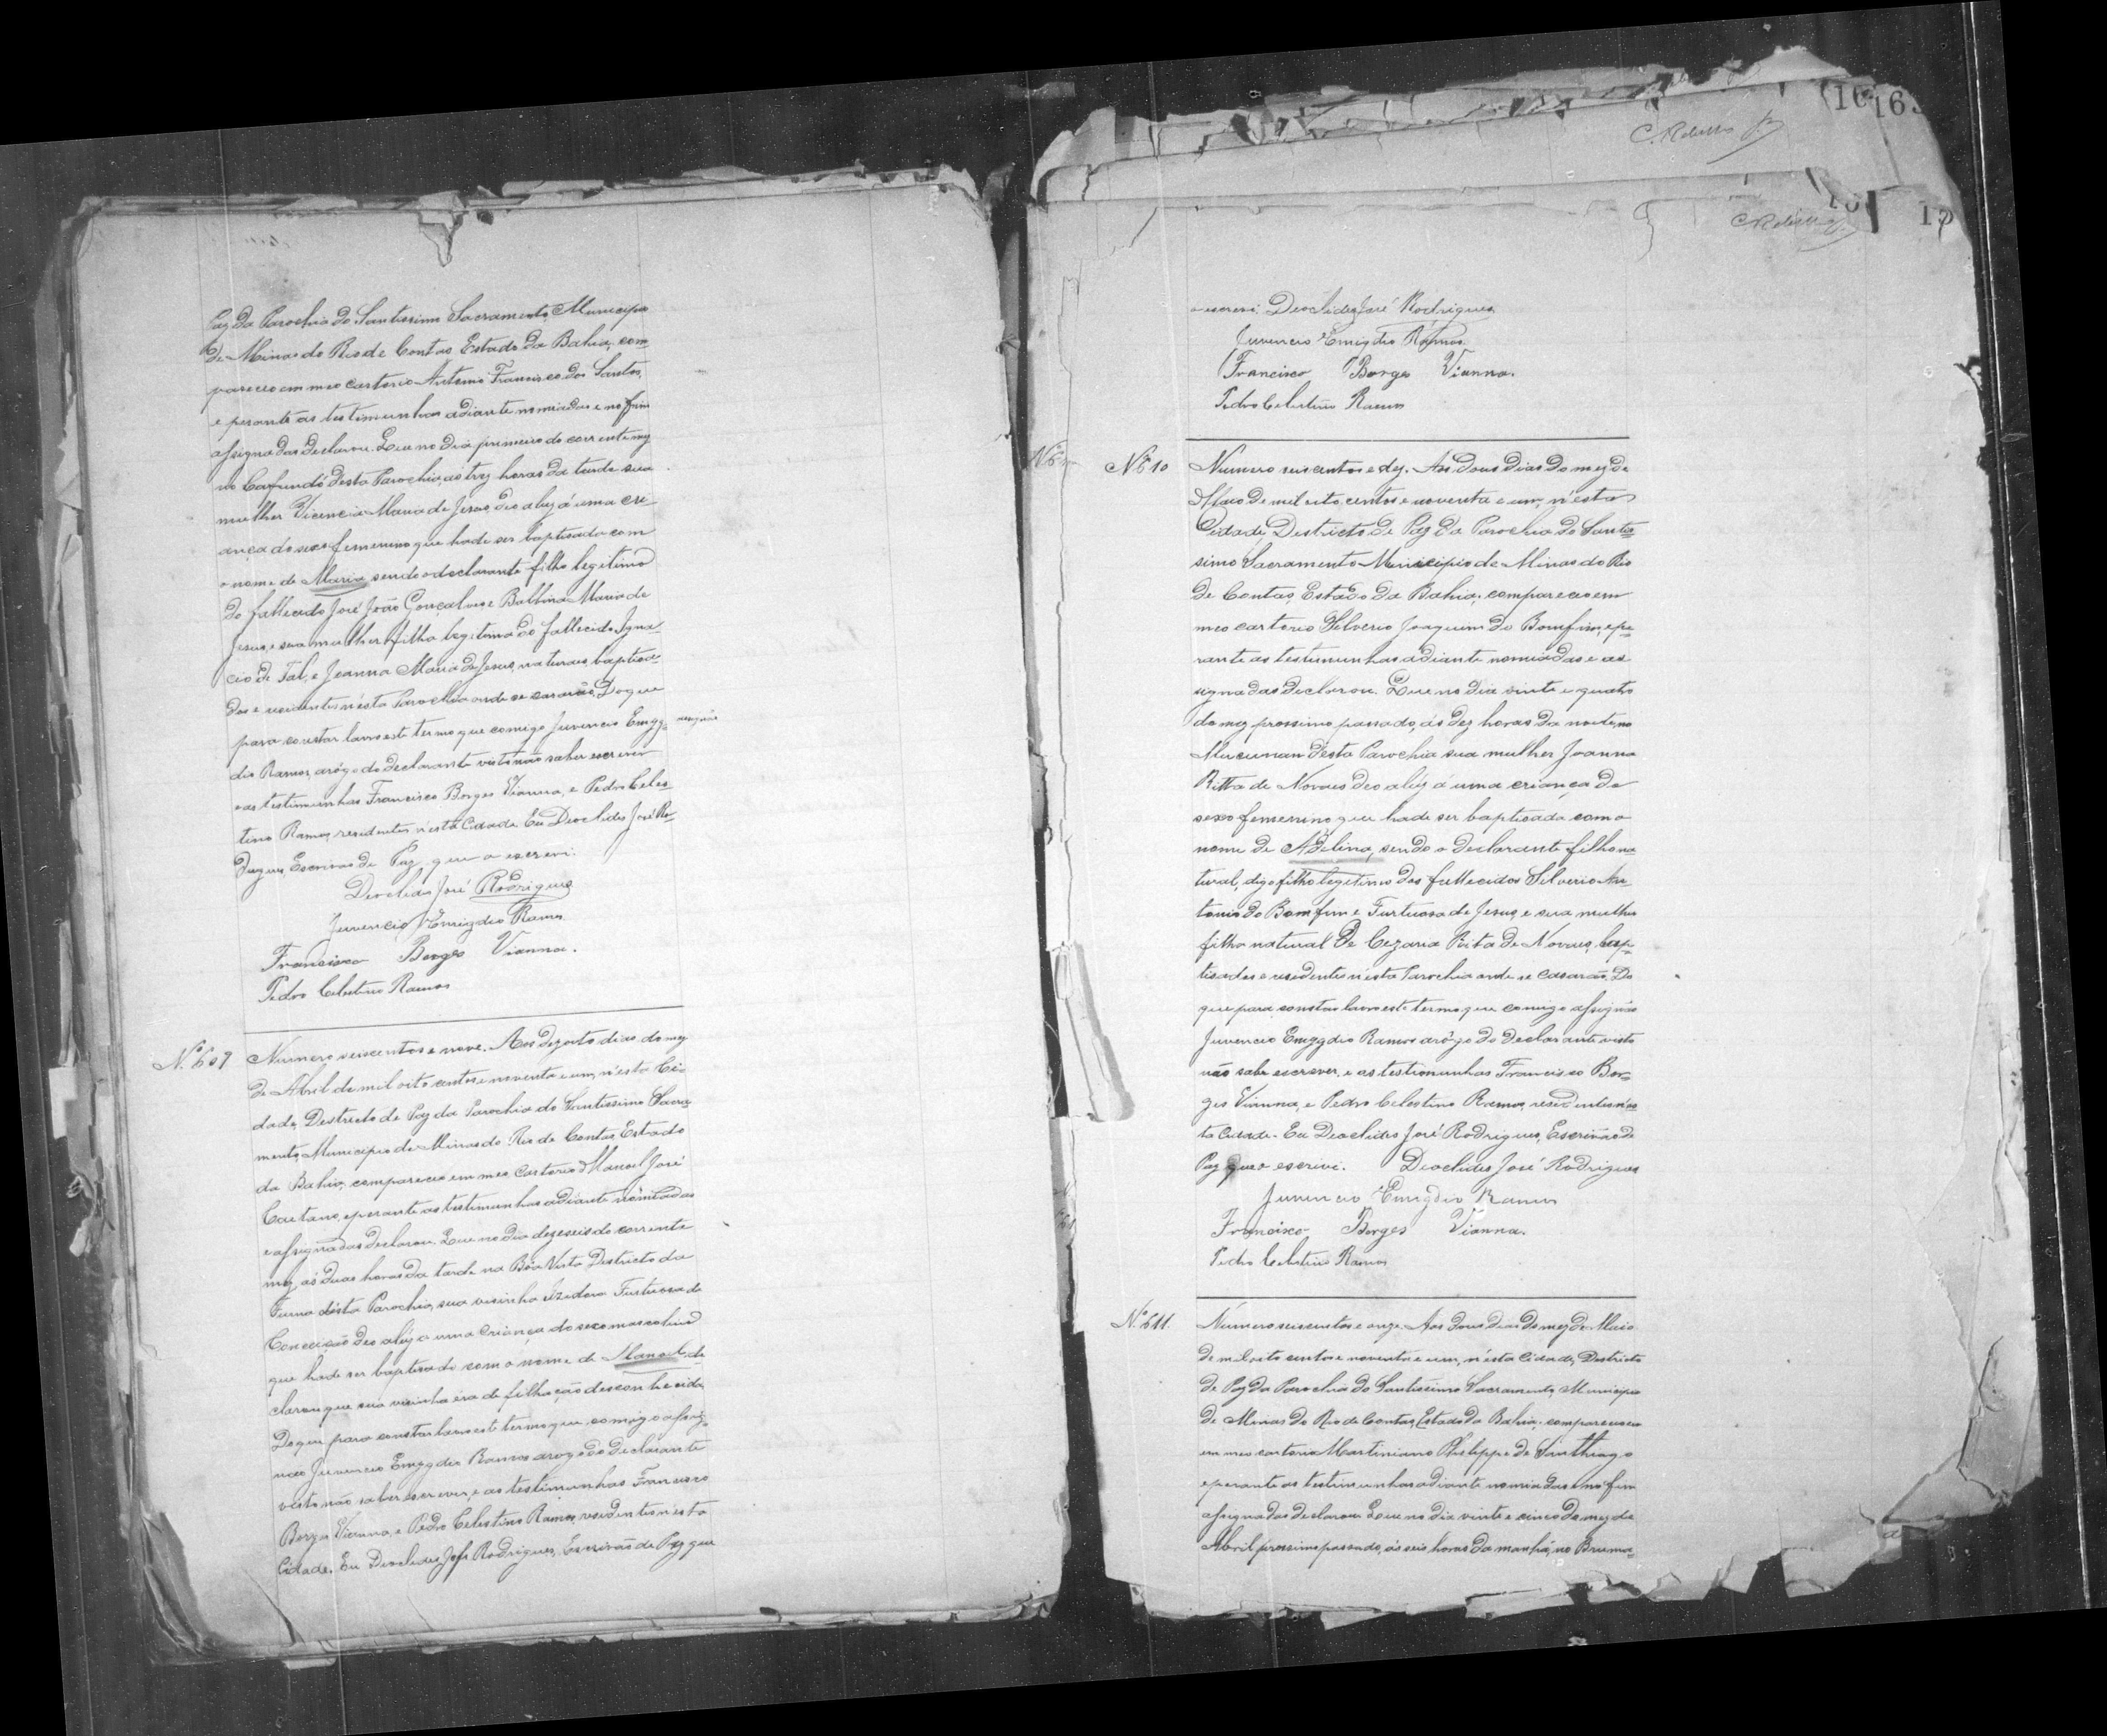 Paz da Parochia do Santissimo Sacramento, Municipio
de Minas do Rio de Contas Estado da Bahia, com-
pareceo em meo cartorio Antonio Francisco dos Santos,
e perante as testimunhas adiante nomiadas e no fim
assignadas declarou. Que no dia primeiro do corrente mez
no Cafundó desta Parochia, as trez horas da tarde sua
mulher Vicencia Maria de Jesus, deo a luz á uma cri-
ança do sexo femenino que hade ser baptisada com
o nome de Maria, sendo o declarante filho legitimo
do fallecido José João Gonçalves e Balbina Maria de
Jesus, e sua mulher filha legitima do fallecido Igna-
cio de Tal, e Joanna Maria de Jesus, naturaes, baptisa-
dos e residentes n'esta Parochia onde se casarão. Do que
para constar lavro este termo que comigo Juvencio Emyg- assignão
dio Ramos, arôgo do declarante visto não saber escrever
e as testimunhas Francisco Borges Vianna, e Pedro Celes-
tino Ramos, residentes n'esta Cidade. Eu Deoclides José Ro-
drigues, Escrivão de Paz que o escrevi.
Deoclides José Rodrigues
Juvencio Emigdio Ramos
Francisco Borges Vianna.
Pedro Celestino Ramos
Nº 609 Numero seiscentos e nove. Aos dezoito dias do mez
de Abril de mil oito centos e noventa e um, n'esta Ci-
dade, Destricto de Paz da Parochia do Santissimo Sacra-
mento, Municipio de Minas do Rio de Contas, Estado
da Bahia, compareceo em meo Cartorio Manoel José
Caetano, e perante as testimunhas adiante nomiadas
e assignadas declarou. Que no dia dezeseis do corrente
mez, ás duas horas da tarde na Bôa Vista Destricto da
Furna désta Parochia, sua visinha Izidora Furtuosa da
Conceição deo a luz a uma criança do sexo masculino
que hade ser baptisado com o nome de Manoel, de-
clarou que sua visinha éra de filhação desconhecida,
Do que para constar lavro este termo que comigo assig-
não Juvencio Emygdio Ramos arogo do declarante
visto não saber escrever, e as testimunhas Francisco
Borges Vianna, e Pedro Celestino Ramos, residentes n'esta
Cidade. Eu Deoclides José Rodrigues, Escrivão de Paz que
o escrevi. Deoclides José Rodrigues
Juvencio Emigdio Ramos
Francisco Borges Vianna.
Pedro Celestino Ramos
Nº 610 Numero seiscentos e dez. Aos dous dias do mez de
Maio de mil oito centos e noventa e um, n'esta
Cidade, Destricto de Paz da Parochia do Santis-
simo Sacramento Municipio de Minas do Rio
de Contas, Estado da Bahia, compareceo em
meo cartorio Silverio Joaquim do Bomfim, e pe-
rante as testimunhas adiante nomiadas e as-
signadas declarou. Que no dia vinte e quatro
do mez prossimo passado, ás dez horas da noite, no
Mucunan désta Parochia sua mulher Joanna
Ritta de Novaes deo a lúz á uma criança do
sexo femenino que hade ser baptisada com o
nome de Adelina, sendo o declarante filho na-
tural, digo filho legitimo dos fallecidos Silverio An-
tonio do Bomfim e Furtuosa de Jesus, e sua mulher
filha natural de Cezaria Rita de Novaes, bap-
tisados e residentes n'esta Parochia onde se casarão. Do
que para constar lavro este termo que comigo assignão
Juvencio Emygdio Ramos arôgo do declarante visto
não saber escrever, e as testimunhas Francisco Bor-
ges Vianna, e Pedro Celestino Ramos, residentes n'es-
ta Cidade. Eu Deoclides José Rodrigues, Escrivão de
Paz que o escrivi. Deoclides José Rodrigues
Juvencio Emigdio Ramos
Francisco Borges Vianna.
Pedro Celestino Ramos
Nº 611. Numero seiscentos e onze. Aos dous dias do mez de Maio
de mil oito centos e noventa e um, n'esta Cidade, Destricto
de Paz da Parochia do Santissimo Sacramento, Municipio
de Minas do Rio de Contas, Estado da Bahia, compareceo
em meo cartorio Martiniano Philippe de Santhiago
e perante as testimunhas adiante nomiadas e no fim
assignadas declarou. Que no dia vinte e cinco do mez de
Abril prossimo passado, ás seis horas da manhã, no Bruma-